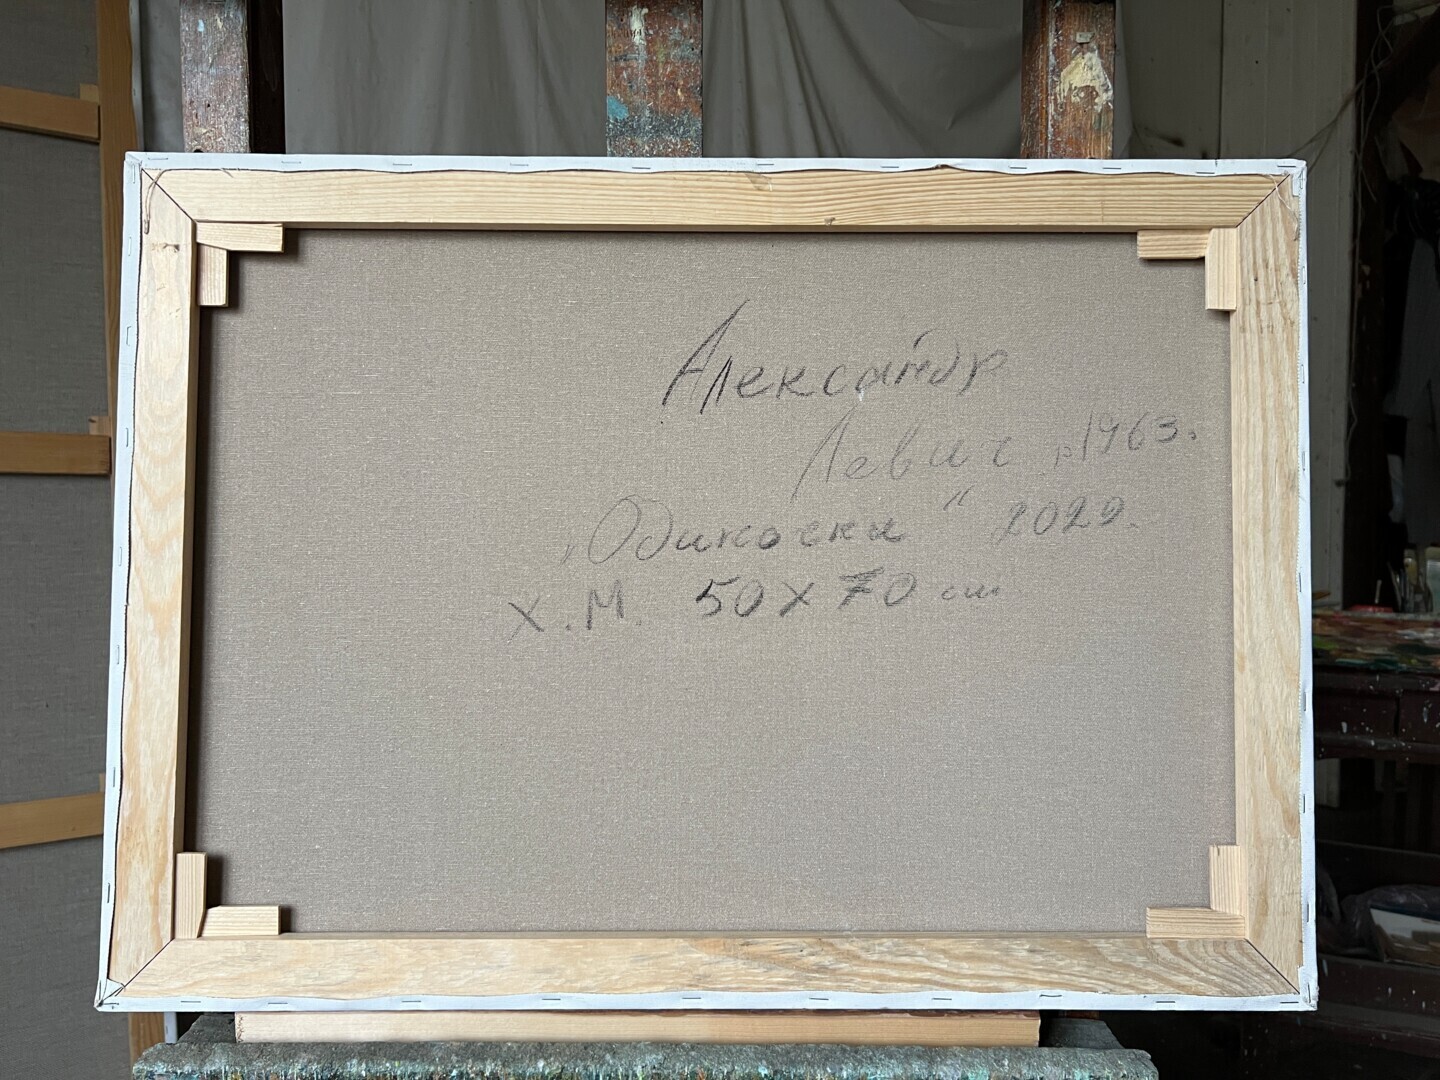 Александр
Левич р1963.
„Одиночки“ 2029.
Х.М. 50х70 см